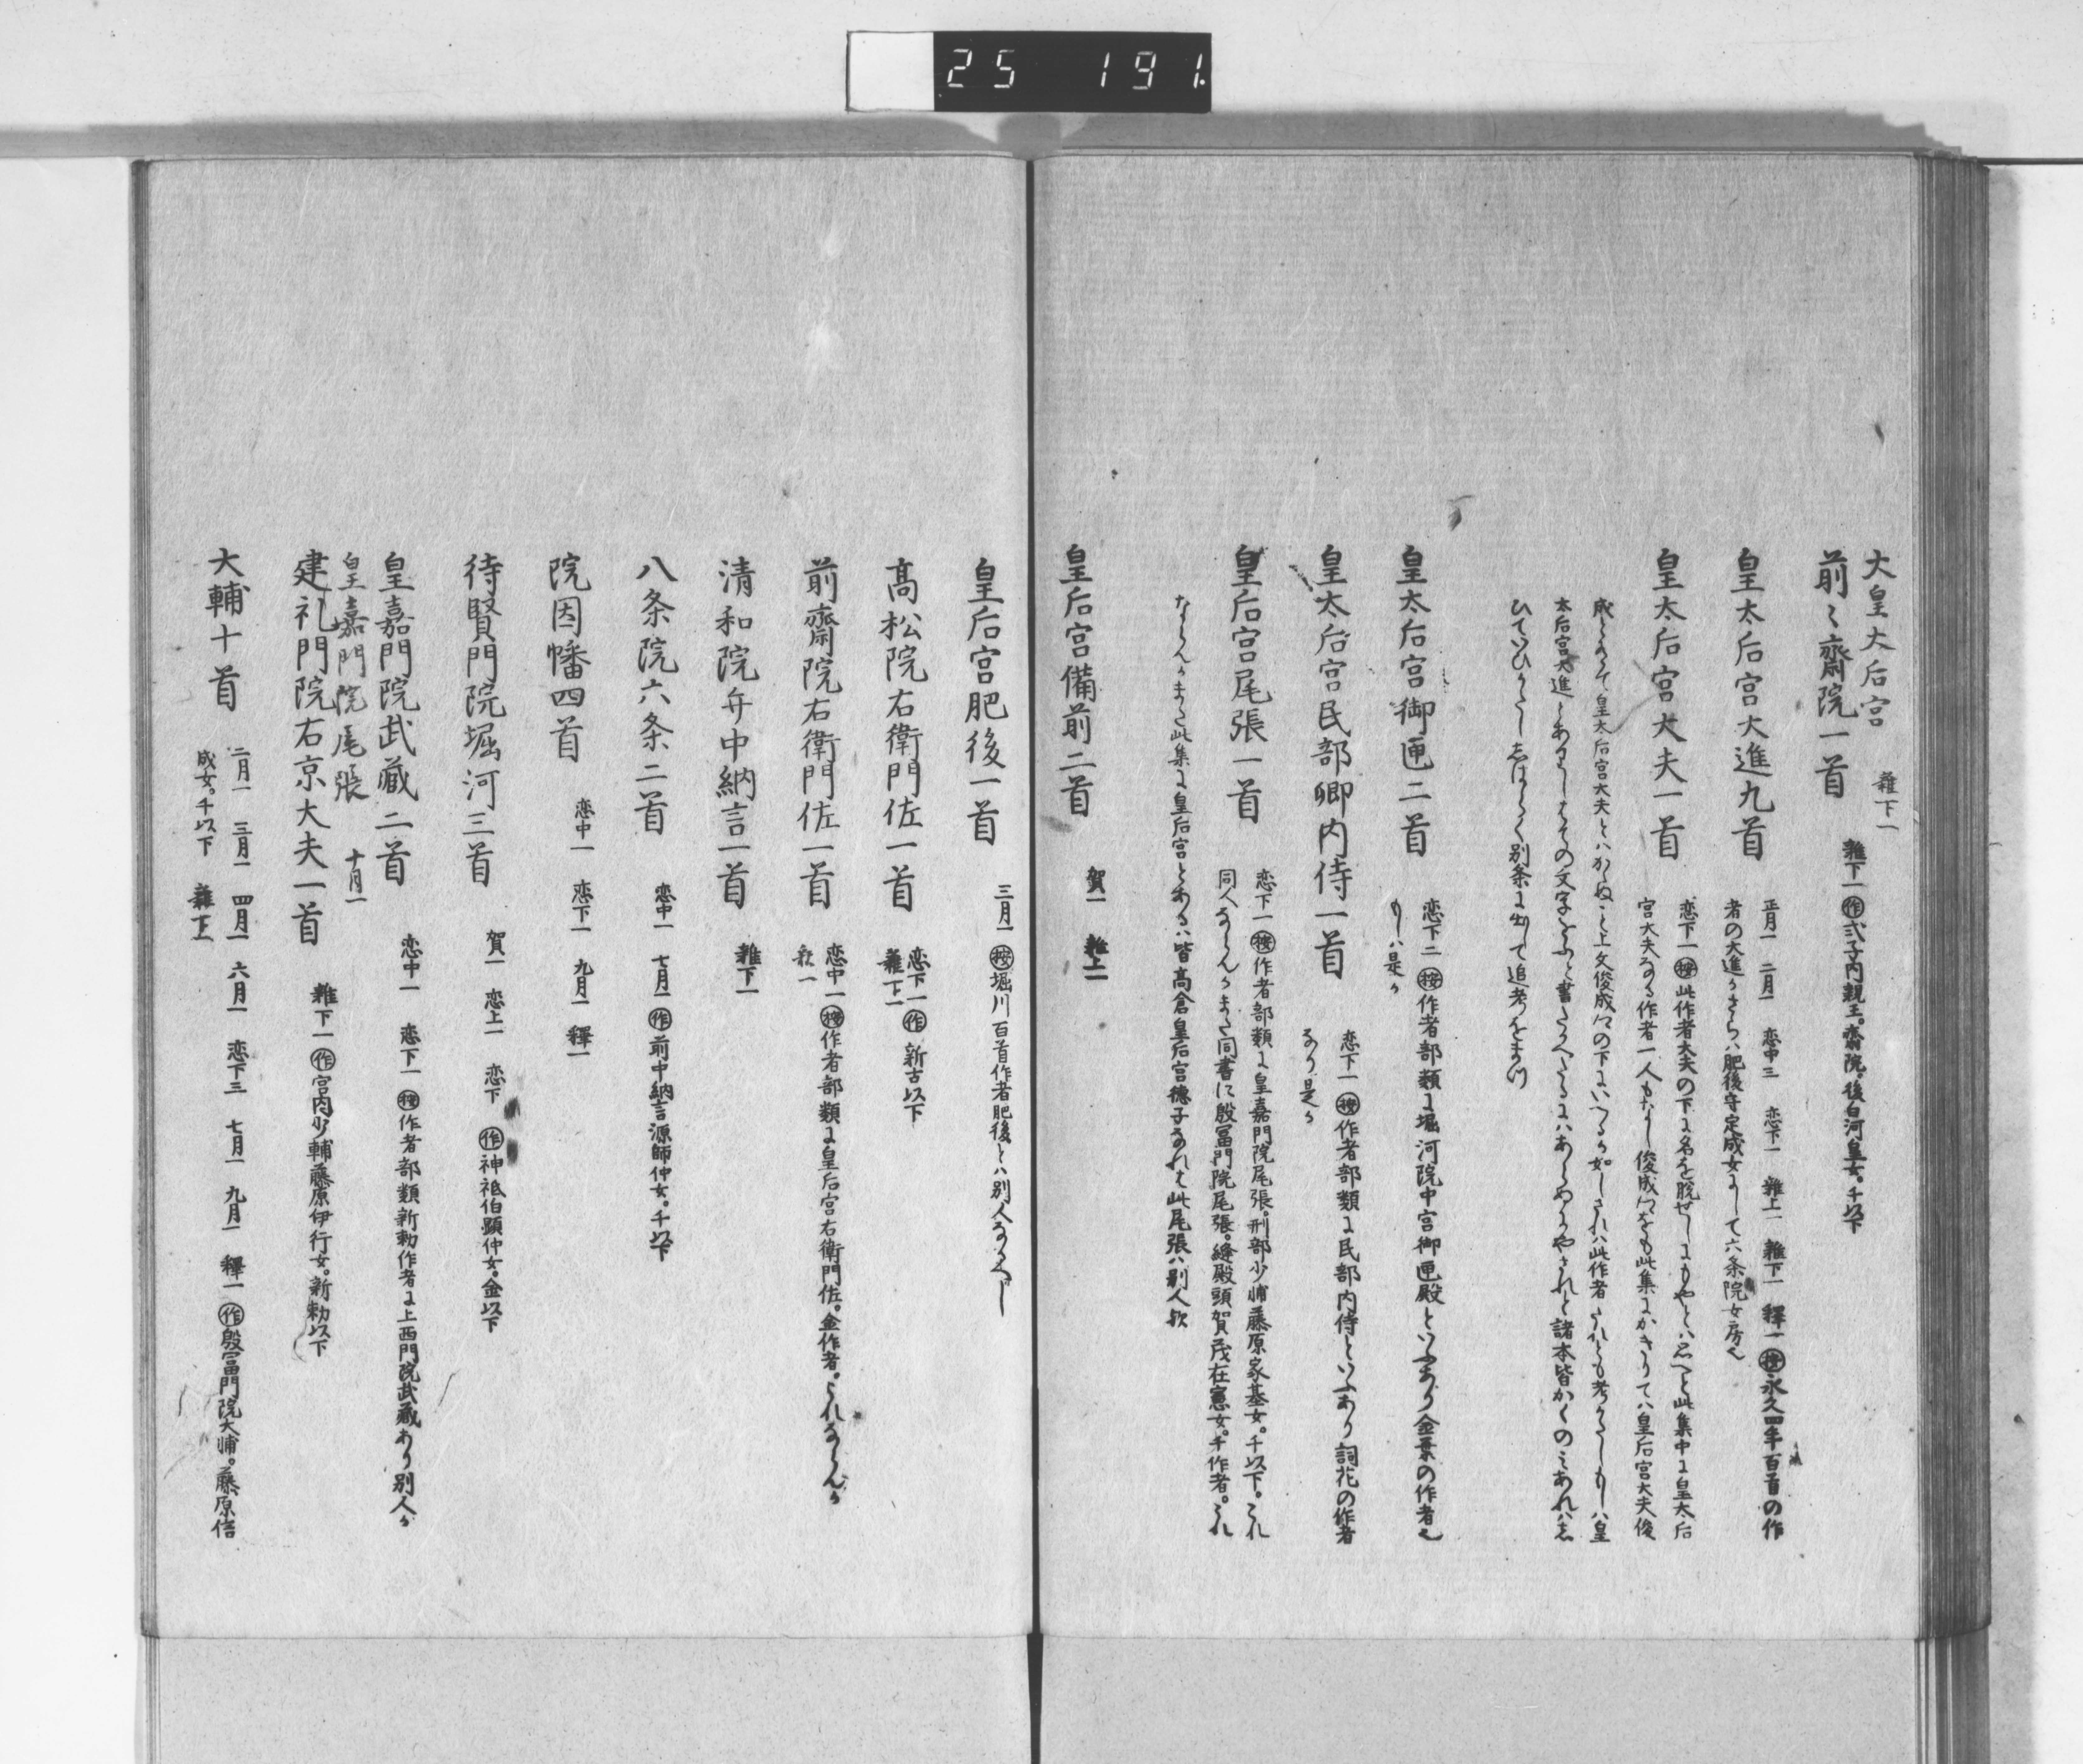 25 191
大皇大后宮 雜下一
前〻齋院一首 雜下一 作 式子内親王。齋院。後白河皇女。千以下
皇太后宮大進九首 正月一 二月一 恋中三 恋下一 雜上一 雜下一 釋一 按 永久四年百首の作
者の大進かさらハ肥後守定成女にして六条院女房也
皇太后宮大夫一首 恋下一 按 此作者大夫の下に名を脱せしにもやとハ思へと此集中に皇太后
宮大夫なる作者一人もなし俊成卿をも此集にかきりてハ皇后宮大夫俊
成とのミて皇太后宮大夫とハかゝぬこと上文俊成卿の下にいへるか如しされハ此作者
太后宮大進とありしを
諸本皆かくのミあれハ
別条に出して追考をまつ
皇太后宮御匣二首 恋下二 按 作者部類に堀河院中宮御匣殿といふあり金葉の作者也
もしハ是か
皇太后宮民部卿内侍一首 恋下一 按 作者部類に民部内侍といふあり詞花の作者
なり是か
皇后宮尾張一首 恋下一 按 作者部類に皇嘉門院尾張。刑部少輔藤原家基女。千以下。これ
同人ならんかまた同書に殷富門院尾張。縫殿頭賀茂在憲女。千作者。これ
ならんかまた此集に皇后宮とあるハ皆高倉皇后宮徳子なれは此尾張ハ別人歟
皇后宮備前二首 賀一 雜上一
皇后宮肥後一首 三月一 按 堀川百首作者肥後とハ別人なるへし
高松院右衛門佐一首 恋下一 作 新古以下
雜下一
前齋院右衛門佐一首 恋中一 按 作者部類に皇后宮右衛門佐。金作者。これならんか
歟一
清和院弁中納言一首 雜下一
八条院六条二首 恋中一 七月一 作 前中納言源師仲女。千以下
院因幡四首 恋中一 恋下一 九月一 釋一
待賢門院堀河三首 賀一 恋上一 恋下 作 神祇伯顕仲女。金以下
皇嘉門院武蔵二首 恋中一 恋下一 按 作者部類新勅作者に上西門院武蔵あり別人か
皇嘉門院尾張 十月一
建礼門院右京大夫一首 雜下一 作 宮内少輔藤原伊行女。新勅以下
大輔十首 二月一 三月一 四月一 六月一 恋下三 七月一 九月一 釋一 作 殷富門院大輔。藤原信
成女。千以下 雜下一